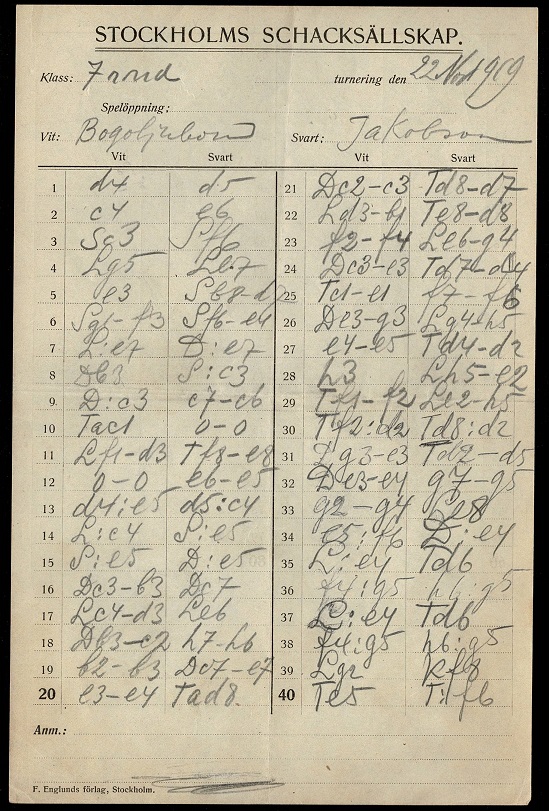 STOCKHOLMS SCHACKSÄLLSKAP.
Klass: turnering den 22 Nov 1919
Spelöppning:
Vit: Bogoljubow Svart: Jakobson
Vit Svart Vit Svart
1 d4 d5 21 Dc2–c3 Td8–d7
2 c4 e6 22 Ld3–b1 Te8–d8
3 Sc3 Sf6 23 f2–f4 Le6–g4
4 Lg5 Le7 24 Dc3–e3 Td7–d4
5 e3 Sb8–d7 25 Tc1–e1 f7–f6
6 Sg1–f3 Sf6–e4 26 De3–g3 Lg4–h5
7 L:e7 D:e7 27 e4–e5 Td4–d2
8 Db3 S:c3 28 h3 Lh5–e2
9 D:c3 c7–c6 29 Tf1–f2 Le2–h5
10 Tac1 0–0 30 Tf2:d2 Td8:d2
11 Lf1–d3 Tf8–e8 31 Dg3–e3 Td2–d5
12 0–0 e6–e5 32 De3–e4 g7–g5
13 d4:e5 d5:c4 33 g2–g4 Le8
14 L:c4 S:e5 34 e5:f6 D:e4
15 S:e5 D:e5 35 L:e4 Td6
16 Dc3–b3 Dc7 36 f4:g5 h6:g5
17 Lc4–d3 Le6 37 L:e4 Td6
18 Db3–c2 h7–h6 38 f4:g5 h6:g5
19 b2–b3 Dc7–e7 39 Lg2 Kf8
20 e3–e4 Tad8. 40 Te5 T:f6
Anm.:
F. Englunds förlag, Stockholm.